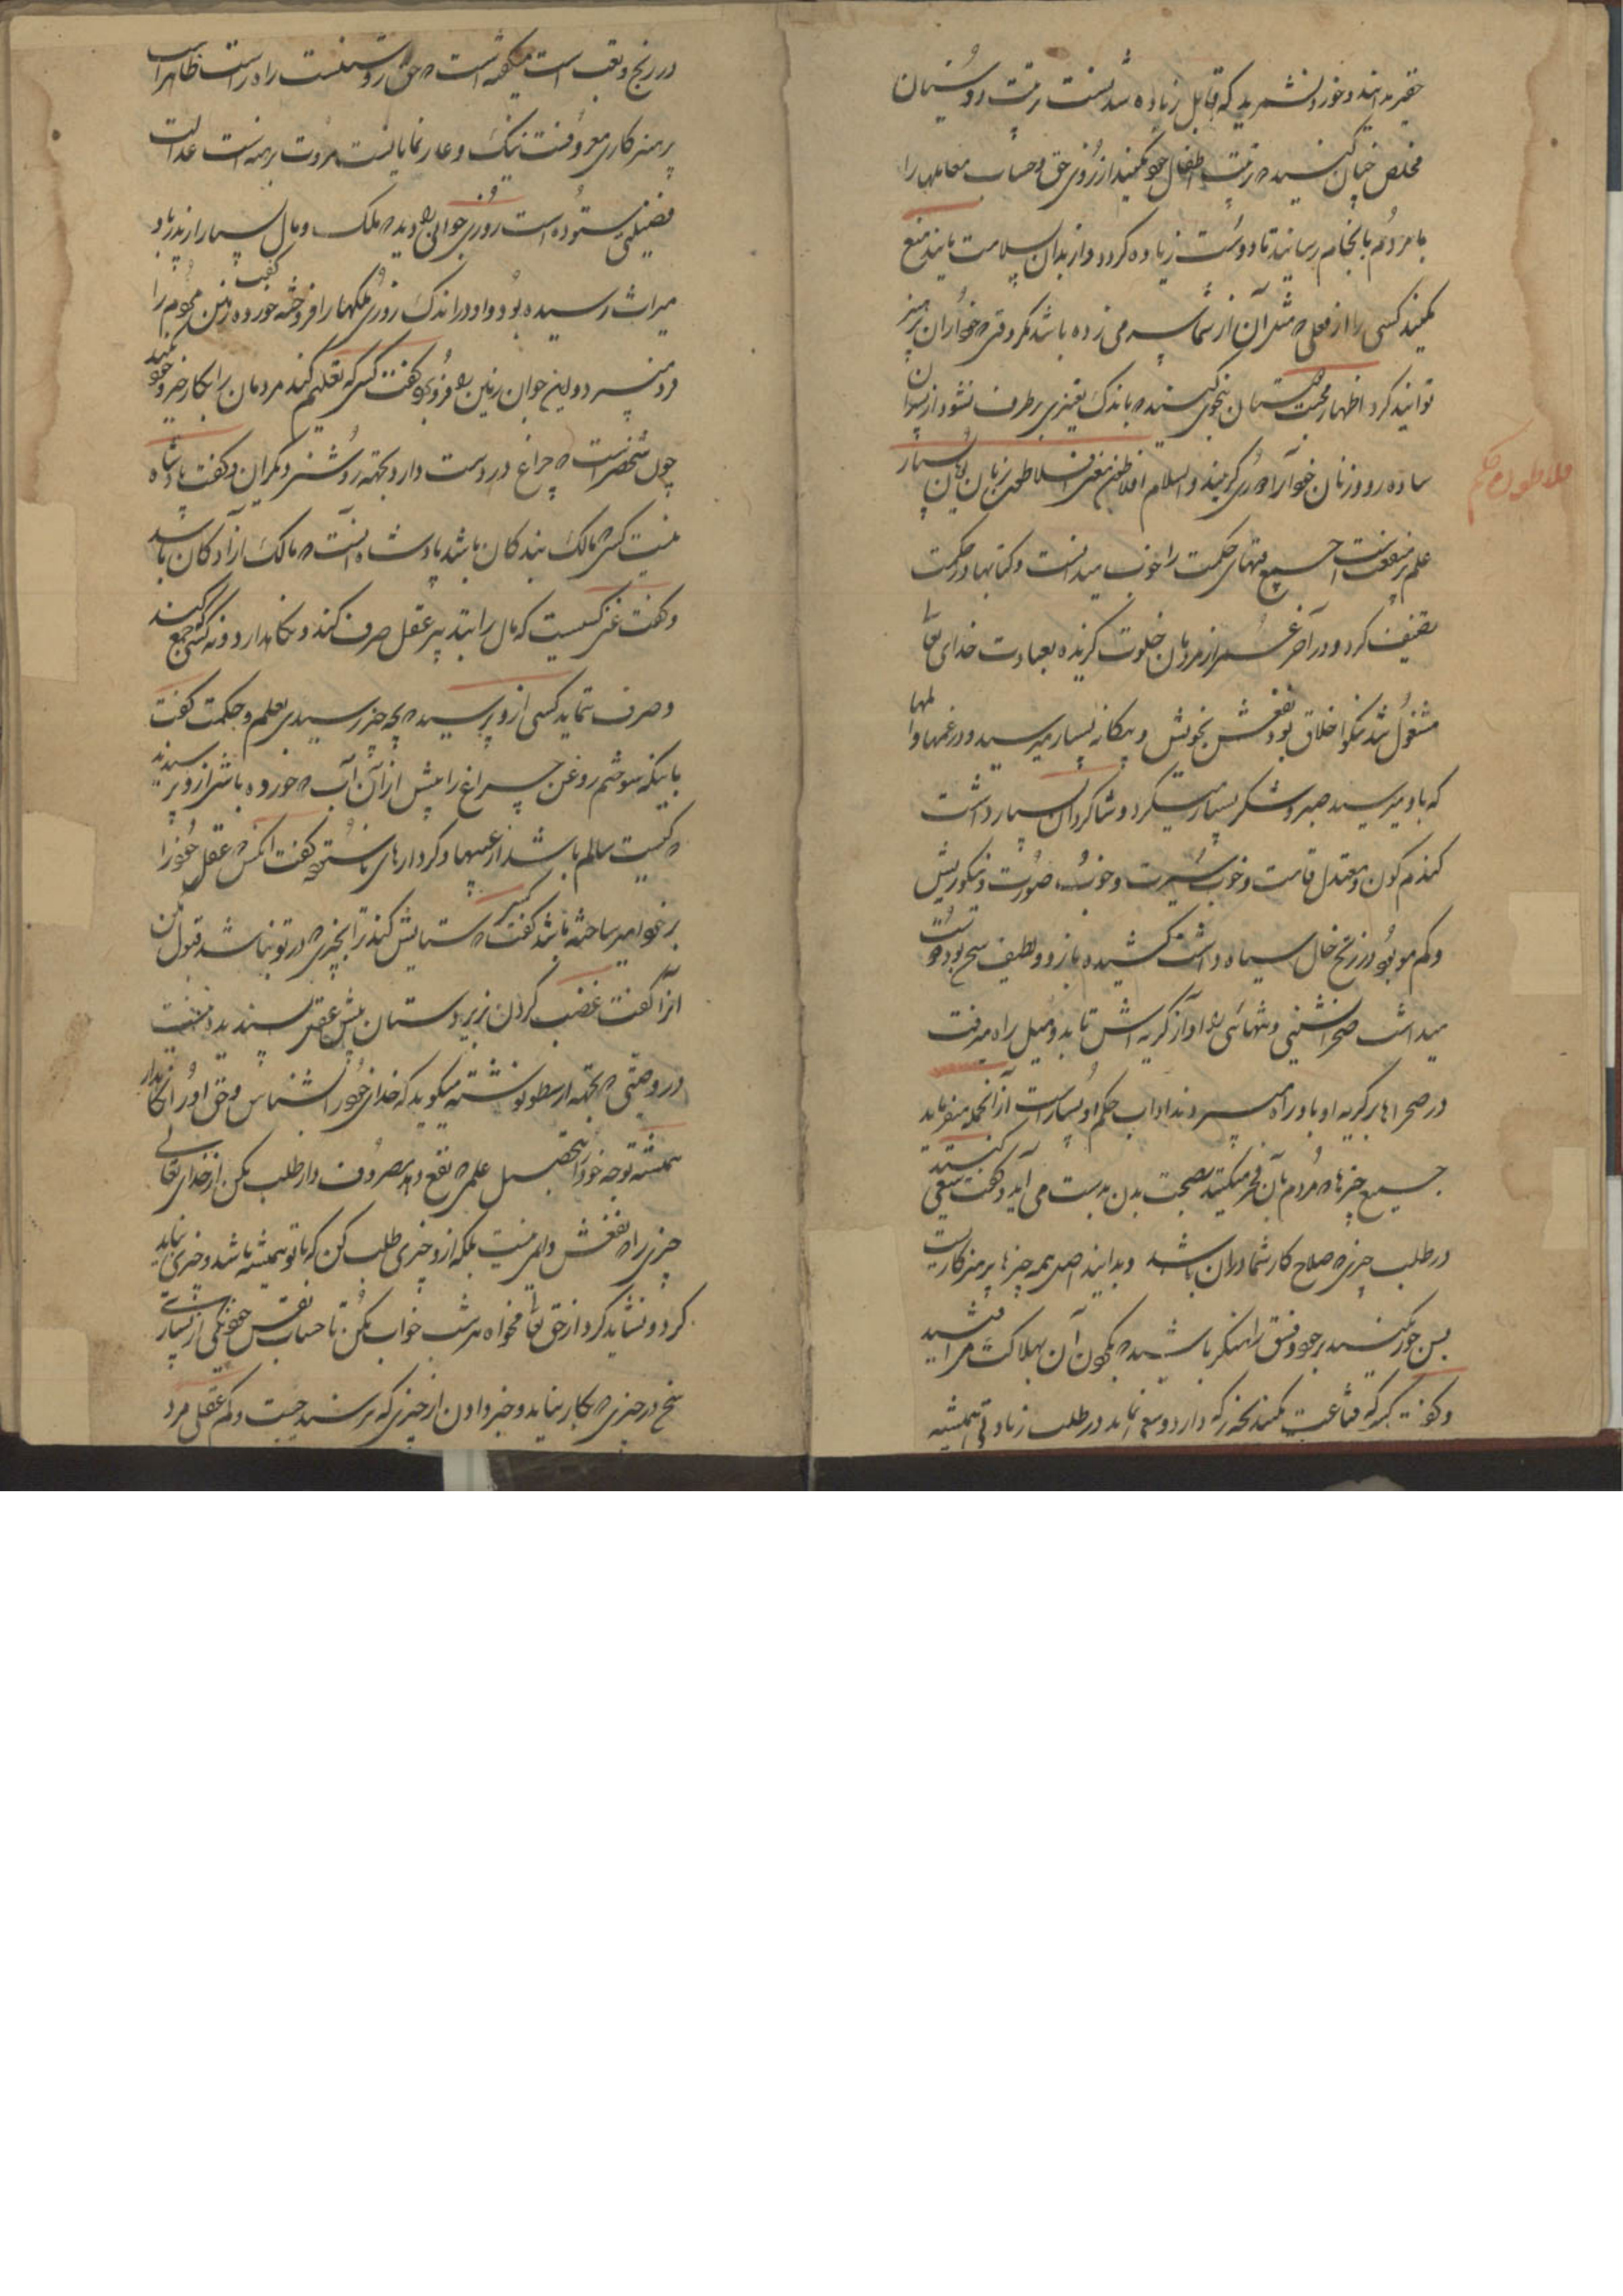 حقیر مدانید و خورد نشمرید که قابل زیاده شدنست تربیت دوستان
مخلص چنان کنید که تربیت اطفال خود میکنید از روی حق و حساب معاملها را
با مردم بانجام رسانید تا دوست زیاده گردد و از بدان سلامت یابید منع
مکنید کسی را از فعلی که مثل آن از شما سر می زده باشد مگر وقتی که خود از آن پرهیز
توانید کرد اظهار محبت دوستان بنحوی کنید که باندک تغییری برطرف نشود از پسران
ساده رو و زنان خود آرا دوری گزینید والسلام افلاطن معنی افلاطن بزبان یونان بسیار
فلاطون حکیم
علم پر منفعت است جمیع قسمهای حکمت را خوب میدانست و کتابها در حکمت
تصنیف کرد و در آخر عمر از مردمان خلوت گزیده بعبادت خدای تعالی
مشغول شد نیکو اخلاق بود نفعش بخویش و بیگانه بسیار میرسید و در غمها و المها
که باو میرسید صبر و شکر بسیار میکرد و شاگردان بسیار داشت
گندم گون و معتدل قامت و خوب سیرت و خوب صورت و نیکو ریش
و کم مو بود در زنخ خال سیاه داشت کشیده بازو و لطیف سخن بود دوست
میداشت صحرا نشینی و تنهائی را آواز گریه اش تا بدو میل راه میرفت
در صحراها بر گریه او باو راه میبردند آداب حکم او بسیار است از آنجمله میفرماید
جمیع چیزها که مردم بآن فخر میکنند بصحت بدن بدست می آید و گفت سعی کنید
در طلب چیزی که صلاح کار شما در آن باشد و بدانید اصل همه چیزها پرهیزکاریست
پس جور مکنید بر خود و فسق را منکر باشید که نگون آن بهلاکت مر افتید
و گفت هر که قناعت نکند بچیزی که دارد و سعی نماید در طلب زیادتی همیشه
در رنج و تعب است میگفته است که حق روشنست راه راست ظاهر است
پرهیزکاری معروفست نیک و عار نمایانست مروت برهنه است عدالت
فضیلتی ستوده است روزی جوانی را دید که ملک و مال بسیار از پدر باو
میراث رسیده بود و او در اندک روزی ملکها را فروخته خورده گفت زمین مردم را
فرو میبرد و این جوان زمین را فرو برد گفت کسی که تعلیم کند مردمان را بکار خیر و خود نکند
چون شخصیست که چراغ در دست دارد بجهت روشنی دیگران و گفت پادشاه
نیست کسی که مالک بندگان باشد پادشاه آنست که مالک آزادگان باشد
و گفت غنی کسیست که مال را بتدبیر عقل صرف کند و نگاهدارد و نه کسی که جمع کند
و صرف ننماید کسی از وپرسید که بچه چیز رسیدی بعلم و حکمت گفت
باینکه سوختم روغن چراغ را بیش از آن آب که خورده باشی از و پرسیدند
که کیست سالم باشد از عیبها و کردارهای ناشسته گفت آنکس که عقل خود را
بر خود امیر ساخته باشد گفت کسی که ستایش کند ترا بچیزی که در تو نباشد قبول مکن
آنرا گفت غضب کردن زبر دستان پیش عقل پسندیده نیست
در وصیتی که بجهة ارسطو نوشته میگوید که خدای خود را بشناس و حق او را نگاهدار
همیشه توجه خود را بتحصیل علمی که نفع دهد مصروف دار طلب مکن از خدای تعالی
چیزی را که نفعش دایمی نیست بلکه از و چیزی طلب کن که با تو همیشه باشد و چیزی نباید
کرد و نشاید کرد از حق تعالی مخواه هر شب خواب مکن تا حساب نفس خود نکنی از بسیاری
سخن در چیزی که بکار نیاید و خبر دادن از چیزی که نپرسند چیست و کم عقلی مرد